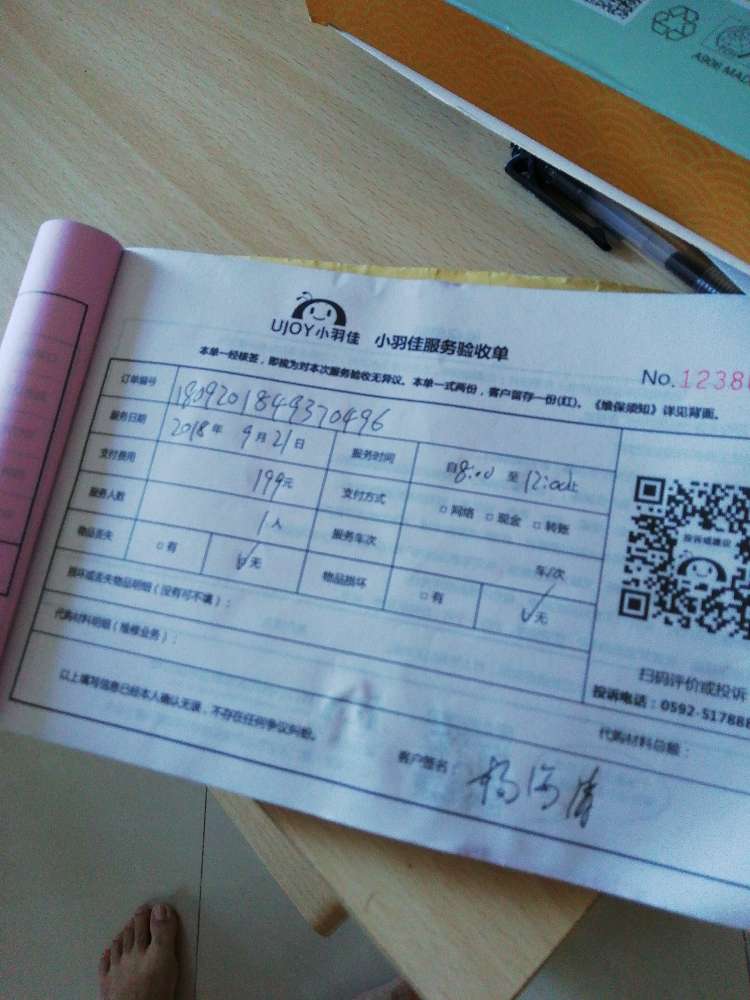 A906 MAD
UJOY小羽佳 小羽佳服务验收单
No.1238
本单一经核签，即视为对本次服务验收无异议。本单一式两份，客户留存一份(红)。《维保须知》详见背面。
订单编号 1809201849370496
服务日期 2018年 9月21日 服务时间 自8:00 至12:00止
支付费用 199元 支付方式 □网络 □现金 □转账
服务人数 1人 服务车次 车/次
物品丢失 □有 □无 物品损坏 □有 无
损坏或丢失物品明细（没有可不填）：
代购材料明细（维修业务）：
代购材料总额：
以上填写信息已经本人确认无误，不存在任何争议纠纷。
客户签名：
投诉或建议
扫码评价或投诉
投诉电话：0592-517888